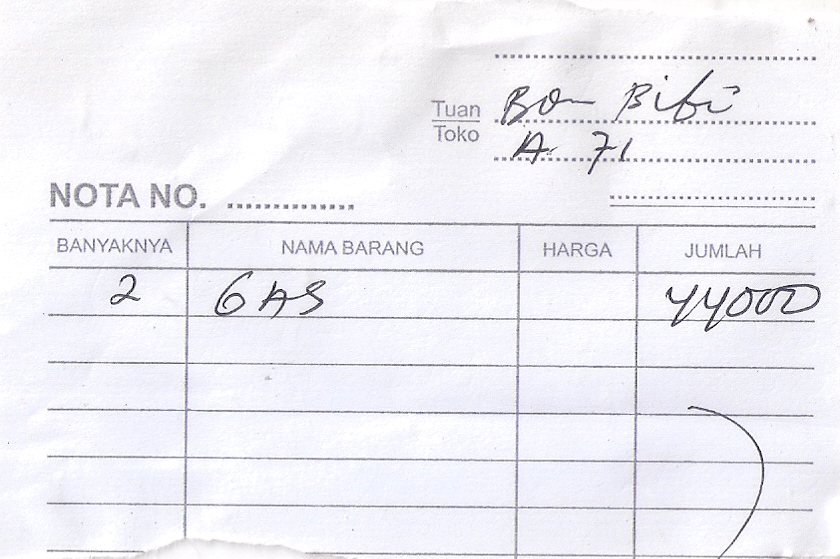 Tuan Bon Bifi
Toko A. 71
NOTA NO. ....................
BANYAKNYA NAMA BARANG HARGA JUMLAH
2 GAS 44000